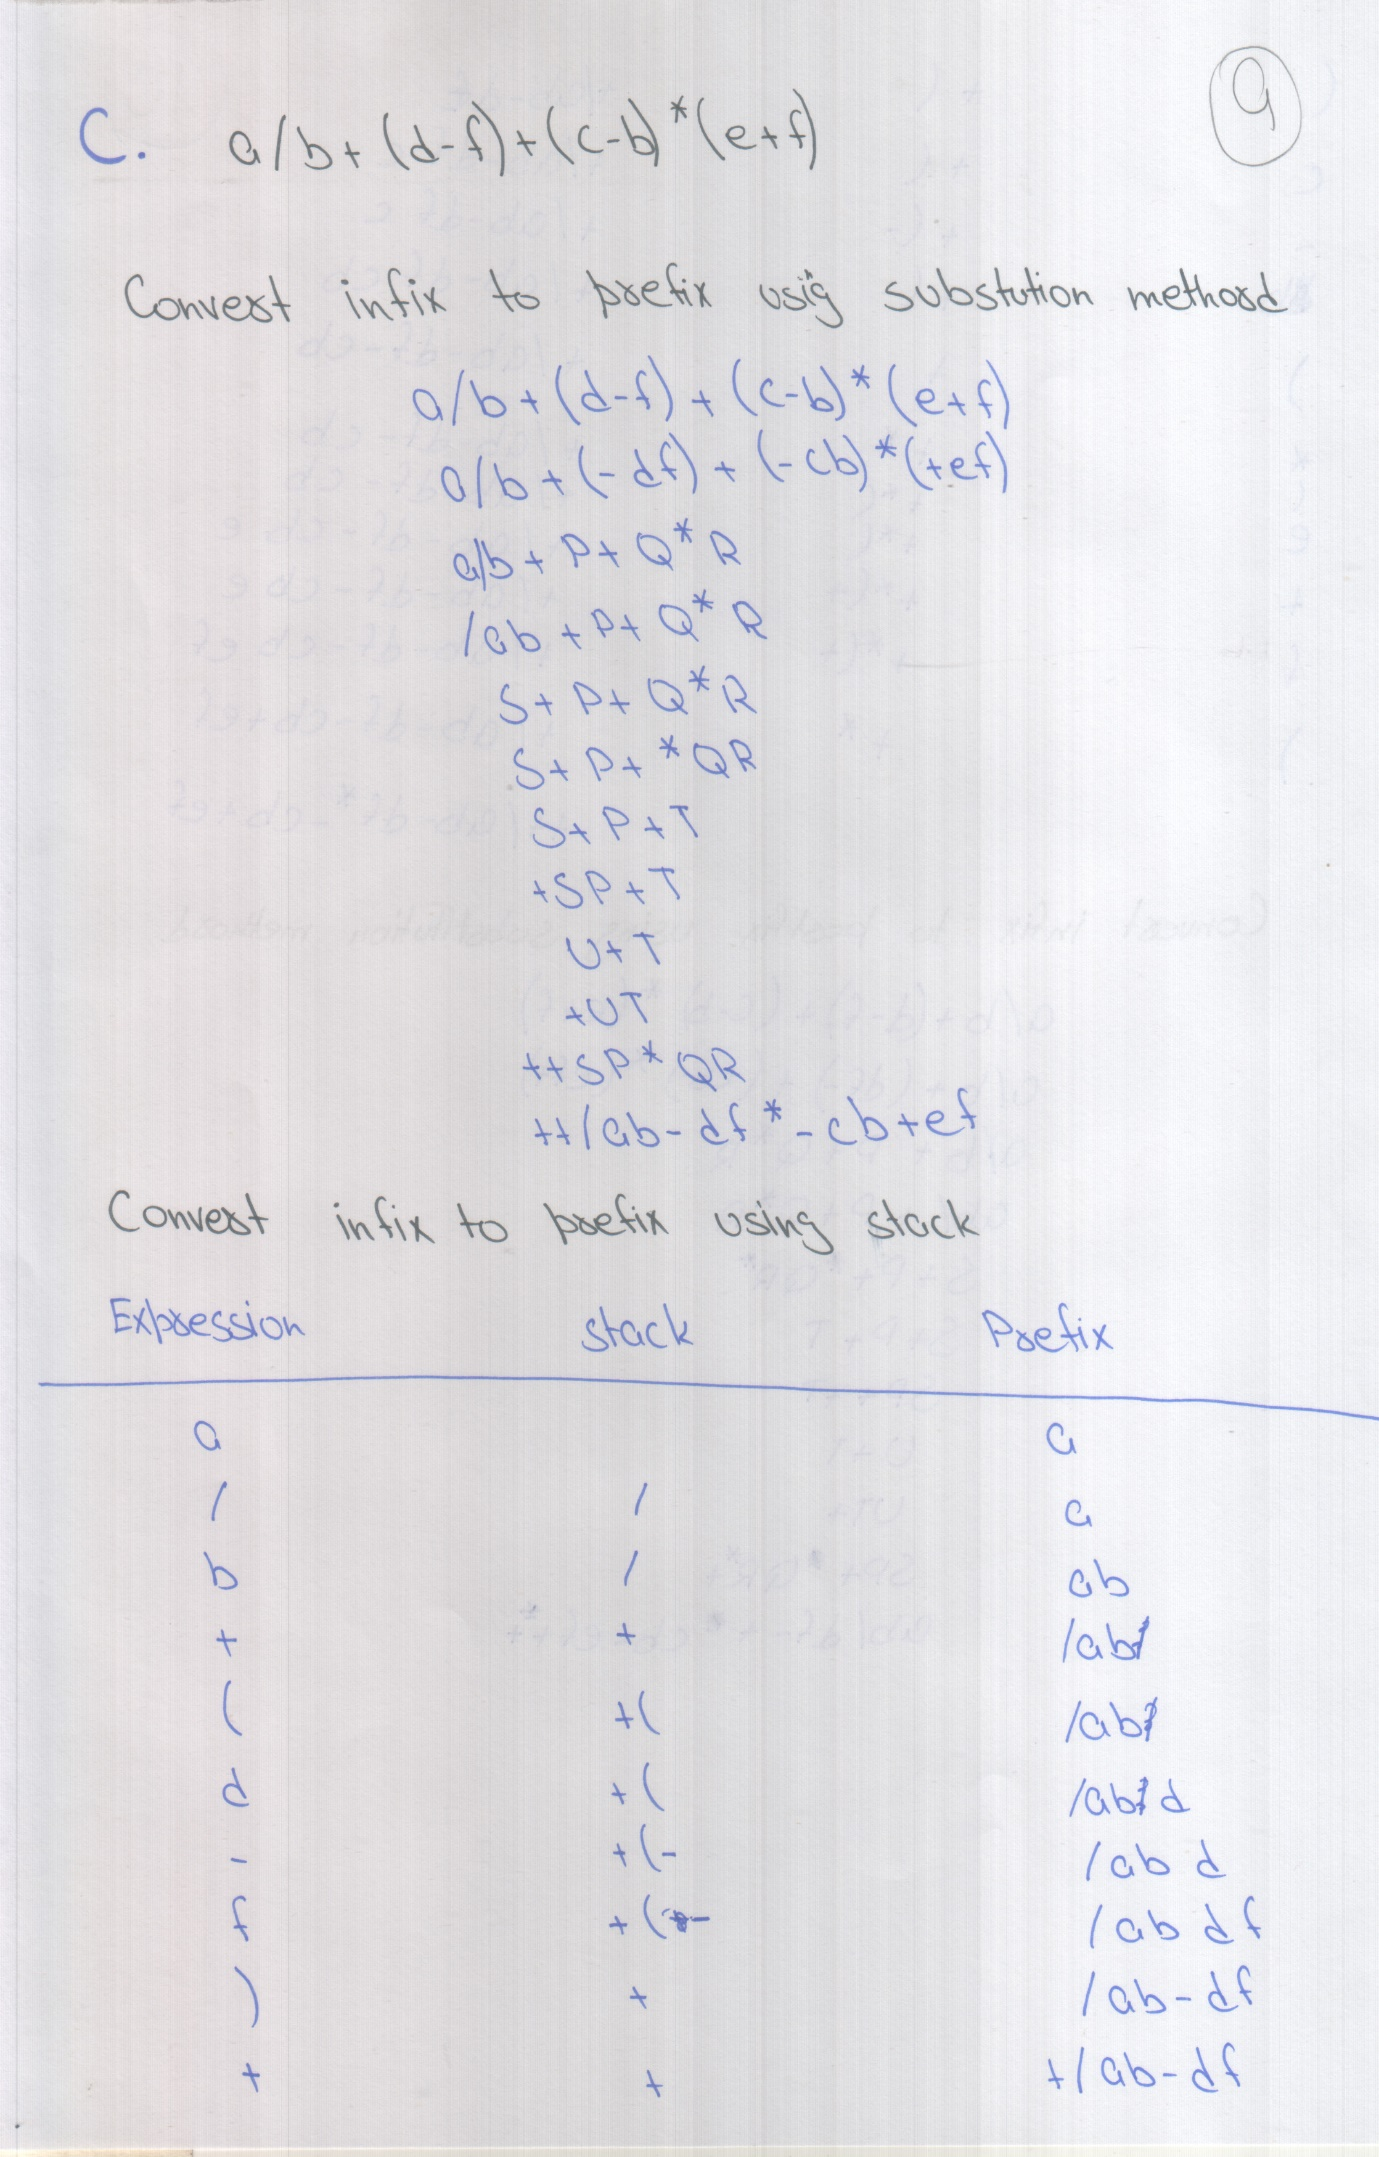 9
C. a/b+(d-f)+(c-b)*(e+f)
Convert infix to prefix usig substution methord
a/b+(d-f)+(c-b)*(e+f)
a/b+(-df)+(-cb)*(+ef)
a/b+P+Q*R
/ab+P+Q*R
S+P+Q*R
S+P+*QR
S+P+T
+SP+T
U+T
+UT
++SP*QR
++/ab-df*-cb+ef
Convert infix to prefix using stack
Expression stack Prefix
a a
/ / a
b / ab
+ + /ab
( +( /ab
d +( /ab d
- +(- /ab d
f +(- /ab df
) + /ab-df
+ + +/ab-df